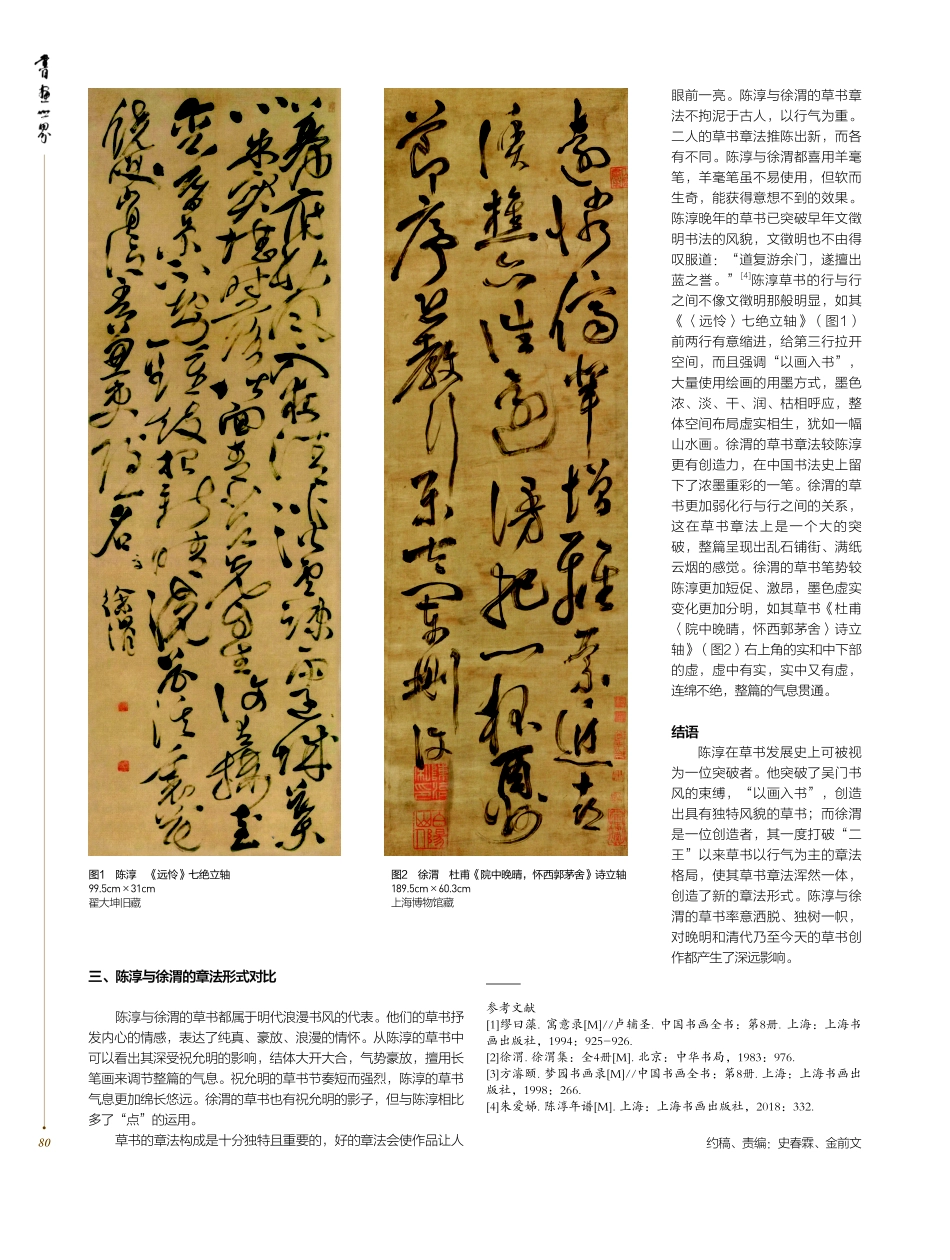 書畫世界
徐渭
图1　陈淳　《远怜》七绝立轴
99.5cm×31cm
翟大坤旧藏
图2　徐渭　杜甫《院中晚晴，怀西郭茅舍》诗立轴
189.5cm×60.3cm
上海博物馆藏
三、陈淳与徐渭的章法形式对比
陈淳与徐渭的草书都属于明代浪漫书风的代表。他们的草书抒
发内心的情感，表达了纯真、豪放、浪漫的情怀。从陈淳的草书中
可以看出其深受祝允明的影响，结体大开大合，气势豪放，擅用长
笔画来调节整篇的气息。祝允明的草书节奏短而强烈，陈淳的草书
气息更加绵长悠远。徐渭的草书也有祝允明的影子，但与陈淳相比
多了“点”的运用。
草书的章法构成是十分独特且重要的，好的章法会使作品让人
眼前一亮。陈淳与徐渭的草书章
法不拘泥于古人，以行气为重。
二人的草书章法推陈出新，而各
有不同。陈淳与徐渭都喜用羊毫
笔，羊毫笔虽不易使用，但软而
生奇，能获得意想不到的效果。
陈淳晚年的草书已突破早年文徵
明书法的风貌，文徵明也不由得
叹服道：“道复游余门，遂擅出
蓝之誉。”[4]陈淳草书的行与行
之间不像文徵明那般明显，如其
《〈远怜〉七绝立轴》（图1）
前两行有意缩进，给第三行拉开
空间，而且强调“以画入书”，
大量使用绘画的用墨方式，墨色
浓、淡、干、润、枯相呼应，整
体空间布局虚实相生，犹如一幅
山水画。徐渭的草书章法较陈淳
更有创造力，在中国书法史上留
下了浓墨重彩的一笔。徐渭的草
书更加弱化行与行之间的关系，
这在草书章法上是一个大的突
破，整篇呈现出乱石铺街、满纸
云烟的感觉。徐渭的草书笔势较
陈淳更加短促、激昂，墨色虚实
变化更加分明，如其草书《杜甫
〈院中晚晴，怀西郭茅舍〉诗立
轴》（图2）右上角的实和中下部
的虚，虚中有实，实中又有虚，
连绵不绝，整篇的气息贯通。
结语
陈淳在草书发展史上可被视
为一位突破者。他突破了吴门书
风的束缚，“以画入书”，创造
出具有独特风貌的草书；而徐渭
是一位创造者，其一度打破“二
王”以来草书以行气为主的章法
格局，使其草书章法浑然一体，
创造了新的章法形式。陈淳与徐
渭的草书率意洒脱、独树一帜，
对晚明和清代乃至今天的草书创
作都产生了深远影响。
参考文献
[1]缪曰藻. 寓意录[M]//卢辅圣. 中国书画全书：第8册. 上海：上海书
画出版社，1994：925-926.
[2]徐渭. 徐渭集：全4册[M]. 北京：中华书局，1983：976.
[3]方濬颐. 梦园书画录[M]//中国书画全书：第8册. 上海：上海书画出
版社，1998：266.
[4]朱爱娣. 陈淳年谱[M]. 上海：上海书画出版社，2018：332.
约稿、责编：史春霖、金前文
80